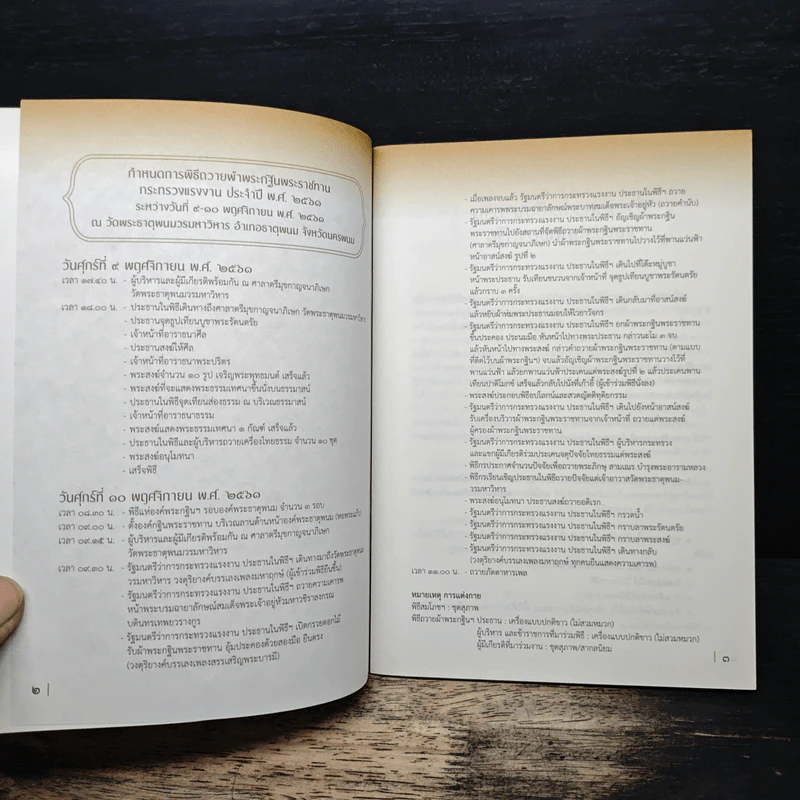 กำหนดการพิธีถวายผ้าพระกฐินพระราชทาน
กระทรวงแรงงาน ประจำปี พ.ศ. ๒๕๖๑
ระหว่างวันที่ ๙-๑๐ พฤศจิกายน พ.ศ. ๒๕๖๑
ณ วัดพระธาตุพนมวรมหาวิหาร อำเภอธาตุพนม จังหวัดนครพนม
วันศุกร์ที่ ๙ พฤศจิกายน พ.ศ. ๒๕๖๑
เวลา ๑๗.๔๐ น. - ผู้บริหารและผู้มีเกียรติพร้อมกัน ณ ศาลาตรีมุขกาญจนาภิเษก
วัดพระธาตุพนมวรมหาวิหาร
เวลา ๑๘.๐๐ น. - ประธานในพิธีเดินทางถึงศาลาตรีมุขกาญจนาภิเษก วัดพระธาตุพนมวรมหาวิหาร
- ประธานจุดธูปเทียนบูชาพระรัตนตรัย
- เจ้าหน้าที่อาราธนาศีล
- ประธานสงฆ์ให้ศีล
- เจ้าหน้าที่อาราธนาพระปริตร
- พระสงฆ์จำนวน ๑๐ รูป เจริญพระพุทธมนต์ เสร็จแล้ว
- พระสงฆ์ที่จะแสดงพระธรรมเทศนาขึ้นนั่งบนธรรมาสน์
- ประธานในพิธีจุดเทียนส่องธรรม ณ บริเวณธรรมาสน์
- เจ้าหน้าที่อาราธนาธรรม
- พระสงฆ์แสดงพระธรรมเทศนา ๑ กัณฑ์ เสร็จแล้ว
- ประธานในพิธีและผู้บริหารถวายเครื่องไทยธรรม จำนวน ๑๐ ชุด
- พระสงฆ์อนุโมทนา
- เสร็จพิธี
วันศุกร์ที่ ๑๐ พฤศจิกายน พ.ศ. ๒๕๖๑
เวลา ๐๘.๓๐ น. - พิธีแห่องค์พระกฐินฯ รอบองค์พระธาตุพนม จำนวน ๓ รอบ
เวลา ๐๙.๐๐ น. - ตั้งองค์กฐินพระราชทาน บริเวณลานด้านหน้าองค์พระธาตุพนม (หอพระแก้ว)
เวลา ๐๙.๑๕ น. - ผู้บริหารและผู้มีเกียรติพร้อมกัน ณ ศาลาตรีมุขกาญจนาภิเษก
วัดพระธาตุพนมวรมหาวิหาร
เวลา ๐๙.๓๐ น. - รัฐมนตรีว่าการกระทรวงแรงงาน ประธานในพิธีฯ เดินทางมาถึงวัดพระธาตุพนม
วรมหาวิหาร วงดุริยางค์บรรเลงเพลงมหาฤกษ์ (ผู้เข้าร่วมพิธียืนขึ้น)
- รัฐมนตรีว่าการกระทรวงแรงงาน ประธานในพิธีฯ ถวายความเคารพ
หน้าพระบรมฉายาลักษณ์สมเด็จพระเจ้าอยู่หัวมหาวชิราลงกรณ
บดินทรเทพยวรางกูร
- รัฐมนตรีว่าการกระทรวงแรงงาน ประธานในพิธีฯ เปิดกรวยดอกไม้
รับผ้าพระกฐินพระราชทาน อุ้มประคองด้วยสองมือ ยืนตรง
(วงดุริยางค์บรรเลงเพลงสรรเสริญพระบารมี)
๒ |
- เมื่อเพลงจบแล้ว รัฐมนตรีว่าการกระทรวงแรงงาน ประธานในพิธีฯ ถวาย
ความเคารพพระบรมฉายาลักษณ์พระบาทสมเด็จพระเจ้าอยู่หัว (ถวายคำนับ)
- รัฐมนตรีว่าการกระทรวงแรงงาน ประธานในพิธีฯ อัญเชิญผ้าพระกฐิน
พระราชทานไปยังสถานที่จัดพิธีถวายผ้าพระกฐินพระราชทาน
(ศาลาตรีมุขกาญจนาภิเษก) นำผ้าพระกฐินพระราชทานไปวางไว้ที่พานแว่นฟ้า
หน้าอาสน์สงฆ์ รูปที่ ๒
- รัฐมนตรีว่าการกระทรวงแรงงาน ประธานในพิธีฯ เดินไปที่โต๊ะหมู่บูชา
หน้าพระประธาน รับเทียนชนวนจากเจ้าหน้าที่ จุดธูปเทียนบูชาพระรัตนตรัย
แล้วกราบ ๓ ครั้ง
- รัฐมนตรีว่าการกระทรวงแรงงาน ประธานในพิธีฯ เดินกลับมาที่อาสน์สงฆ์
แล้วหยิบผ้าห่มพระประธานมอบให้ไวยาวัจกร
- รัฐมนตรีว่าการกระทรวงแรงงาน ประธานในพิธีฯ ยกผ้าพระกฐินพระราชทาน
ขึ้นประคอง ประนมมือ หันหน้าไปทางพระประธาน กล่าวนะโม ๓ จบ
แล้วหันหน้าไปทางพระสงฆ์ กล่าวคำถวายผ้าพระกฐินพระราชทาน (ตามแบบ
ที่ติดไว้บนผ้าพระกฐินฯ) จบแล้วอัญเชิญผ้าพระกฐินพระราชทานวางไว้ที่
พานแว่นฟ้า แล้วยกพานแว่นฟ้าประเคนแด่พระสงฆ์รูปที่ ๒ แล้วประเคนพาน
เทียนปาติโมกข์ เสร็จแล้วกลับไปนั่งที่เก้าอี้ (ผู้เข้าร่วมพิธีนั่งลง)
- พระสงฆ์ประกอบพิธีอปโลกน์และสวดญัตติทุติยกรรม
- รัฐมนตรีว่าการกระทรวงแรงงาน ประธานในพิธีฯ เดินไปยังหน้าอาสน์สงฆ์
รับเครื่องบริวารผ้าพระกฐินพระราชทานจากเจ้าหน้าที่ ถวายแด่พระสงฆ์
ผู้ครองผ้าพระกฐินพระราชทาน
- รัฐมนตรีว่าการกระทรวงแรงงาน ประธานในพิธีฯ ผู้บริหารกระทรวง
และแขกผู้มีเกียรติร่วมประเคนจตุปัจจัยไทยธรรมแด่พระสงฆ์
- พิธีกรประกาศจำนวนปัจจัยเพื่อถวายพระภิกษุ สามเณร บำรุงพระอารามหลวง
- พิธีกรเรียนเชิญประธานในพิธีถวายปัจจัยแด่เจ้าอาวาสวัดพระธาตุพนม-
วรมหาวิหาร
- พระสงฆ์อนุโมทนา ประธานสงฆ์ถวายอดิเรก
- รัฐมนตรีว่าการกระทรวงแรงงาน ประธานในพิธีฯ กรวดน้ำ
- รัฐมนตรีว่าการกระทรวงแรงงาน ประธานในพิธีฯ กราบลาพระรัตนตรัย
- รัฐมนตรีว่าการกระทรวงแรงงาน ประธานในพิธีฯ กราบลาพระสงฆ์
- รัฐมนตรีว่าการกระทรวงแรงงาน ประธานในพิธีฯ เดินทางกลับ
(วงดุริยางค์บรรเลงเพลงมหาฤกษ์ ทุกคนยืนแสดงความเคารพ)
เวลา ๑๑.๐๐ น. - ถวายภัตตาหารเพล
หมายเหตุ การแต่งกาย
พิธีสมโภชฯ : ชุดสุภาพ
พิธีถวายผ้าพระกฐินฯ ประธาน : เครื่องแบบปกติขาว (ไม่สวมหมวก)
ผู้บริหาร และข้าราชการที่มาร่วมพิธี : เครื่องแบบปกติขาว (ไม่สวมหมวก)
ผู้มีเกียรติที่มาร่วมงาน : ชุดสุภาพ/สากลนิยม
| ๓